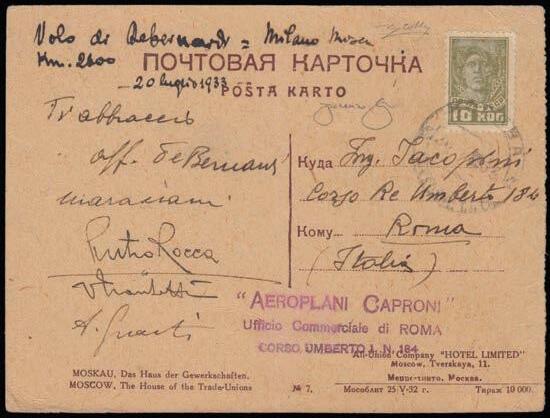 Volo di Debernardi = Milano Mosca
Km. 2600
20 luglio 1933
ПОЧТОВАЯ КАРТОЧКА
POŜTA KARTO
10 КОП
T'abbraccio
aff. DeBernardi
Pietro Rocca
Куда Ing. Iacopini
Corso Re Umberto 184
Кому Roma
(Italia)
"AEROPLANI CAPRONI"
Ufficio Commerciale di ROMA
CORSO UMBERTO I. N. 184
MOSKAU, Das Haus der Gewerkschaften.
MOSCOW, The House of the Trade-Unions
№ 7.
All-Union Company "HOTEL LIMITED"
Moscow, Tverskaya, 11.
Меццо-тинто. Москва.
Мособлит 25-V-32 г.
Тираж 10 000.